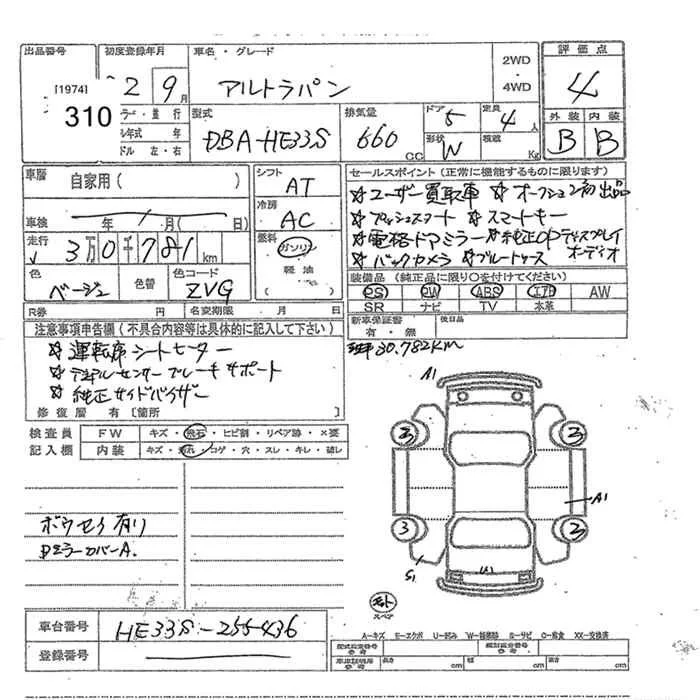 出品番号
[1974]
310
初度登録年月
2 9月
車名・グレード
アルトラパン
2WD
・
4WD
評価点
4
外装 内装
B B
型式
DBA-HE33S
排気量
660
CC
ドア 5
定員 4人
形状 W
積載 Kg
車歴 自家用( )
車検 年 月( 日)
走行 3万0千781km
色 ベージュ
色替
色コード ZVG
シフト AT
冷房 AC
燃料 ガソリン
軽油
セールスポイント(正常に機能するものに限ります)
☆ユーザー買取車 ☆オークション初出品
☆プッシュスタート ☆スマートキー
☆電格ドアミラー ☆純正OPディスプレイ
オーディオ
☆バックカメラ ☆ブルートゥース
装備品(純正品に限り○を付けてください)
PS PW ABS エアB AW
SR ナビ TV 本革
R券 円
名変期限 月 日
新車保証書
有・無
後日品
30,782km
注意事項申告欄(不具合内容等は具体的に記入して下さい)
☆運転席シートヒーター
☆デュアルセンサーブレーキサポート
☆純正サイドバイザー
修復歴 有[箇所 ]
検査員
記入欄
FW キズ・飛石・ヒビ割・リペア跡・×要
内装 キズ・汚れ・コゲ・穴・スレ・キレ・破レ
ボウセイ有り
Dミラーカバー A.
A1
3
A1
3
S1
スペア
車台番号 HE33S-255436
登録番号
A-キズ E-エクボ U-凹み W-補修跡 S-サビ C-腐食 XX-交換済
型式指定番号
類別区分番号
長さ cm
幅 cm
高さ cm